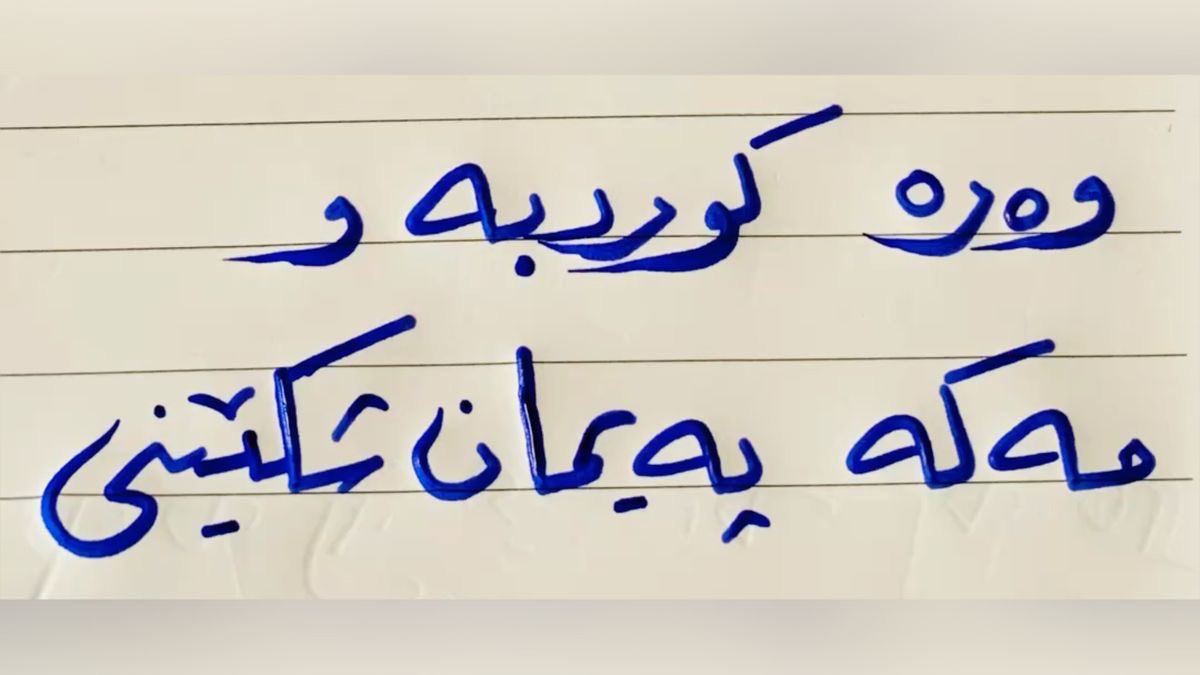 وەرە کوردبە و
مەکە پەیمان شکێنی